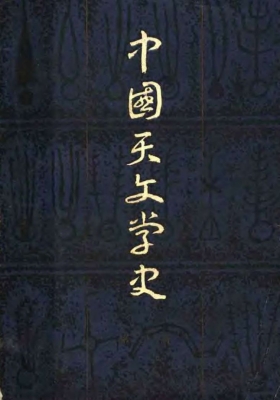 中國天文学史